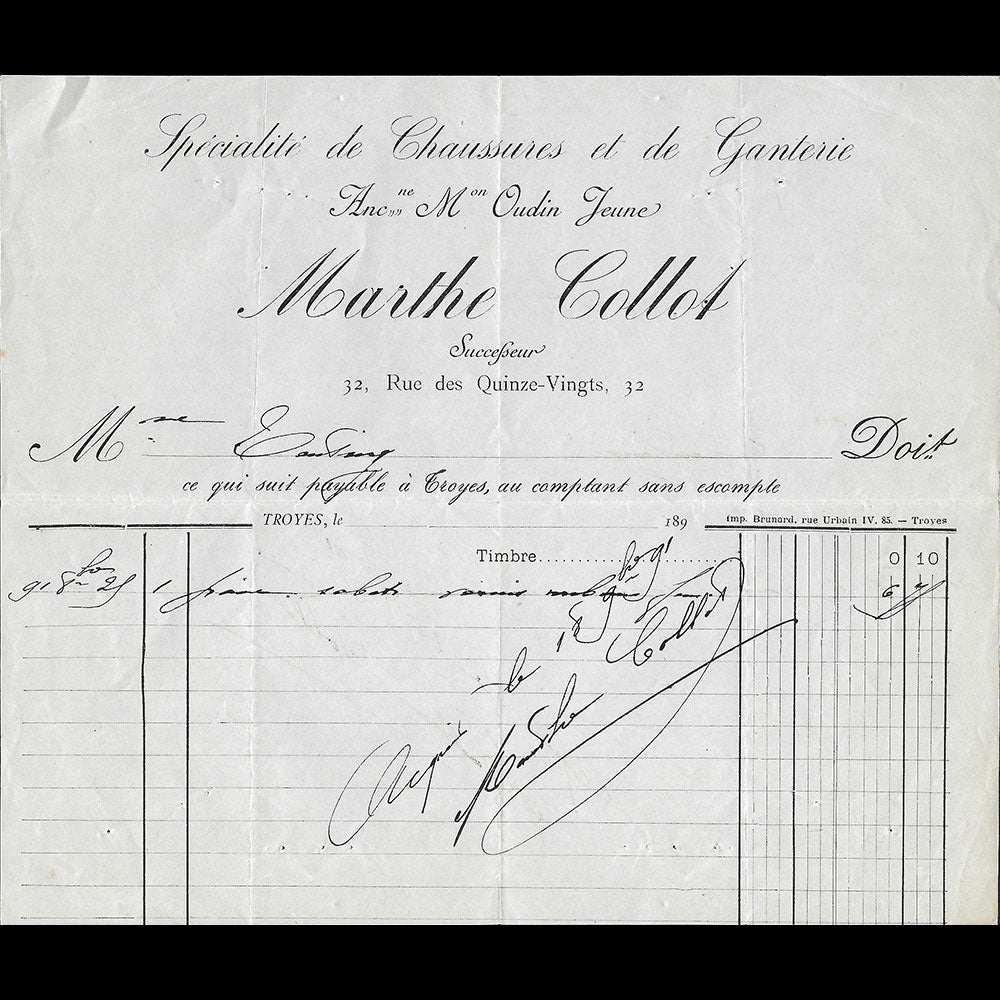 Spécialité de Chaussures et de Ganterie
Anc.ne Mon Oudin Jeune
Marthe Collot
Successeur
32, Rue des Quinze-Vingts, 32
Mme Doit
ce qui suit payable à Troyes, au comptant sans escompte
TROYES, le 189
Imp. Brunard, rue Urbain IV, 85. — Troyes
Timbre 0 10
91 25 1 paire sabots vernis
Acquit le
Marthe Collot